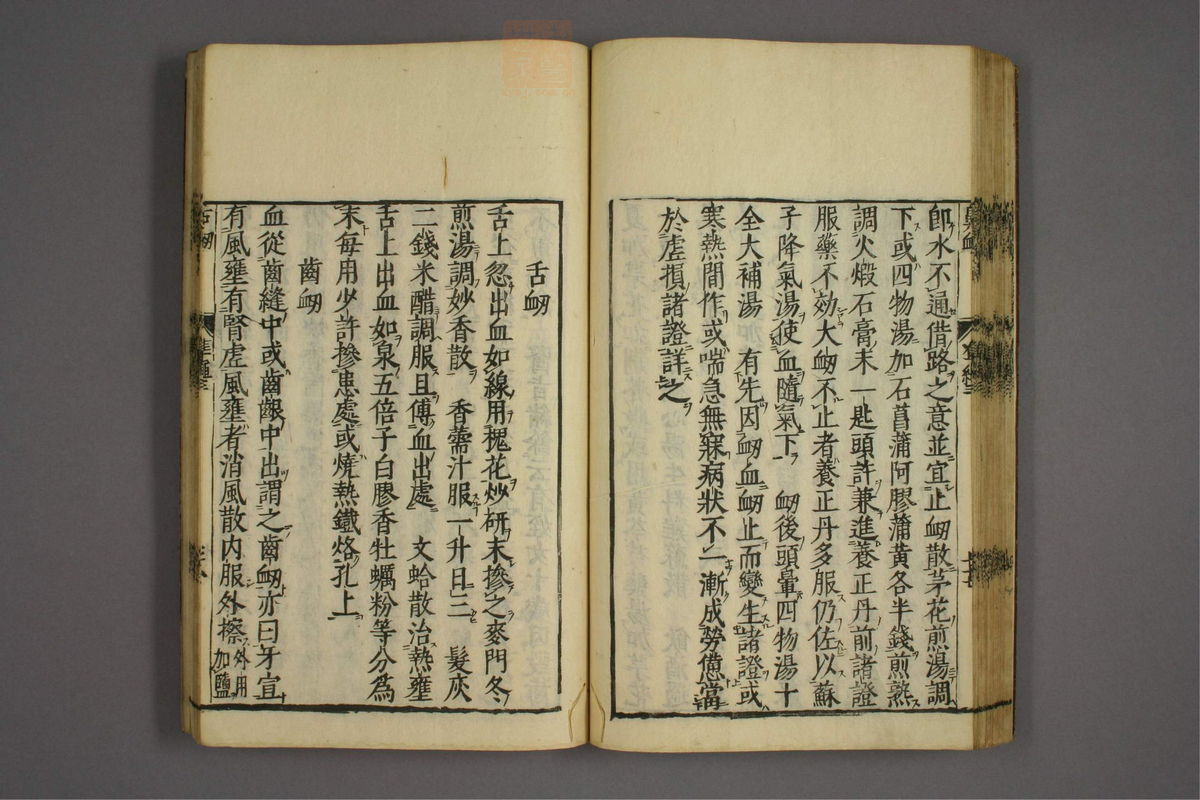 即水不通借路之意並宜止衄散茅花煎湯調
下或四物湯加石菖蒲阿膠蒲黄各半錢煎熟
調火煅石膏末一匙頭許兼進養正丹前諸證
服藥不効大衄不止者養正丹多服仍佐以蘇
子降氣湯使血隨氣下 衄後頭暈四物湯十
全大補湯 有先因衄血衄止而變生諸證或
寒熱間作或喘急無寐病狀不一漸成勞憊當
於虛損諸證詳之
舌衄
舌上忽出血如線用槐花炒研末摻之麥門冬
煎湯調妙香散 香薷汁服一升日三 髮灰
二錢米醋調服且傅血出處 文蛤散治熱壅
舌上出血如泉五倍子白膠香牡蠣粉等分為
末每用少許摻患處或燒熱鐵烙孔上
齒衄
血從齒縫中或齒齦中出謂之齒衄亦曰牙宣
有風壅有腎虛風壅者消風散内服外擦外用
加鹽